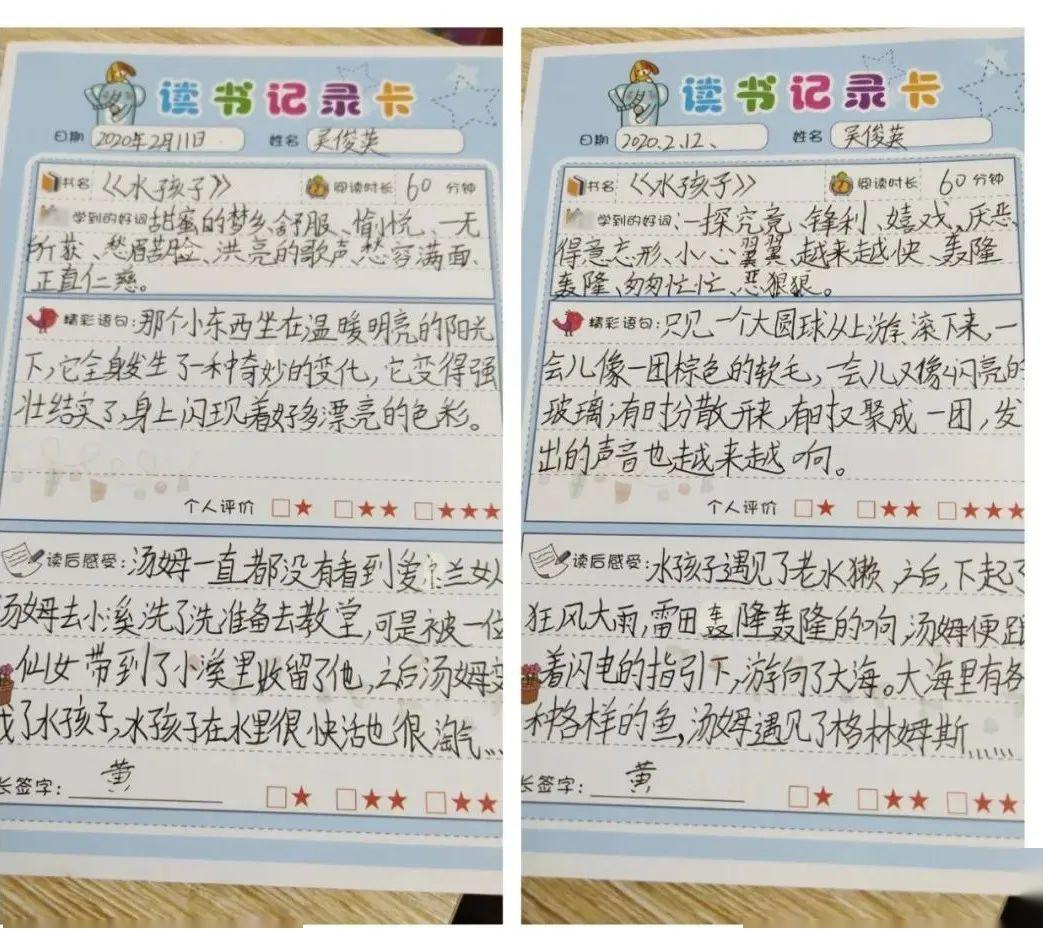 读书记录卡
日期 2020年2月11日 姓名 吴俊英
书名 《水孩子》 阅读时长 60 分钟
学到的好词 甜蜜的梦乡、舒服、愉悦、一无
所获、愁眉苦脸、洪亮的歌声、愁容满面、
正直仁慈。
精彩语句:那个小东西坐在温暖明亮的阳光
下,它全身发生了一种奇妙的变化,它变得强
壮结实了,身上闪现着好多漂亮的色彩。
个人评价 □★ □★★ □★★★
读后感受:汤姆一直都没有看到爱尔兰女人
汤姆去小溪洗了洗准备去教堂,可是被一位
仙女带到了小溪里收留了他,之后汤姆变
成了水孩子,水孩子在水里很快活也很淘气……
长签字: 黄 □★ □★★ □★★
读书记录卡
日期 2020.2.12、 姓名 吴俊英
书名 《水孩子》 阅读时长 60 分钟
学到的好词:一探究竟、锋利、嬉戏、厌恶、
得意忘形、小心翼翼、越来越快、轰隆
轰隆、匆匆忙忙、恶狠狠。
精彩语句:只见一个大圆球从上游滚下来,一
会儿像一团棕色的软毛,一会儿又像闪亮的
玻璃;有时分散开来,有时又聚成一团,发
出的声音也越来越响。
个人评价 □★ □★★ □★★★
读后感受:水孩子遇见了老水獭,之后,下起了
狂风大雨,雷田轰隆轰隆的响,汤姆便跟
着闪电的指引下,游向了大海。大海里有各
种各样的鱼,汤姆遇见了格林姆斯……
长签字: 黄 □★ □★★ □★★